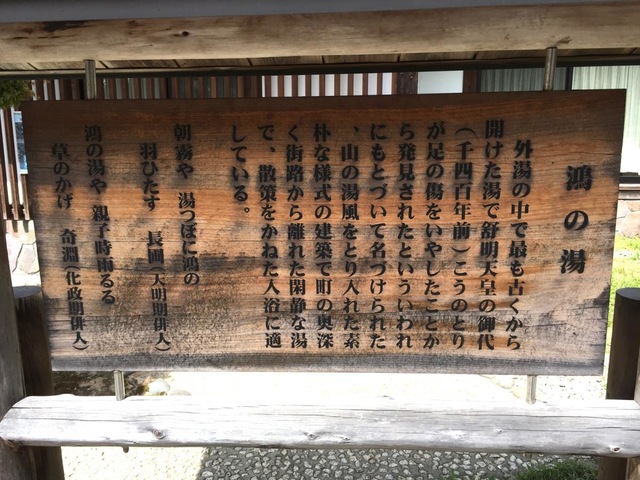 鴻の湯
外湯の中で最も古くから
開けた湯で舒明天皇の御代
（千四百年前）こうのとり
が足の傷をいやしたことか
ら発見されたといういわれ
にもとづいて名づけられた
、山の湯風をとり入れた素
朴な様式の建築で町の奥深
く街路から離れた閑静な湯
で、散策をかねた入浴に適
している。
朝霧や 湯つぼに鴻の
羽ひたす 長圃（大明期俳人）
鴻の湯や 親子時雨るる
草のかげ 奇淵（化政期俳人）